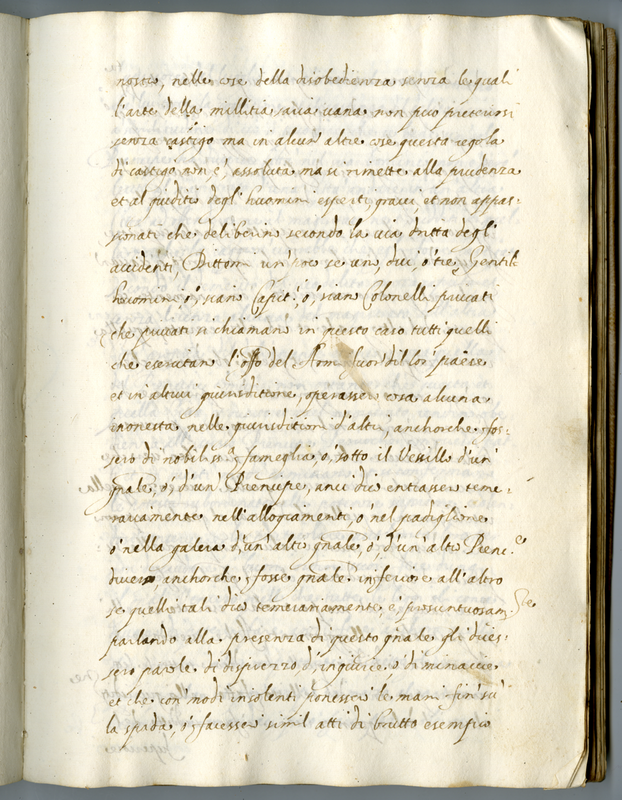 nostro, nelle cose della disobedienza senza le quali
l'arte della millitia saria vana non può preterirsi
senza castigo ma in alcun' altre cose questa regola
di castigo non e' assoluta ma si rimette alla prudenza
et al giuditio degl' huomini esperti gravi et non appas-
sionati che deliberin' secondo la via dritta degl'
accidenti
un', dui, ò tre Gentil
huomini, ò sian' Capit.i ò sian' Colonelli privati
che privati si chiaman' in questo caso tutti quelli
che esercitan' l'offo del fuor' di lor' paese
et in altrui giurisditione, operasser' cosa alcuna
inonesta nelle giurisdition' d'altri, anchorche fos-
sero di nobiliss.a fameglia, ò sotto il Vessillo d'un'
gnale, ò d'un' Prencipe, anci dio entrasser' teme-
rariamente nell' allogiamenti, ò nel padiglione
ò nella galera d'un' altro gnale ò d'un' altro Prenc.e
diverso, anchorche fosse gnale inferiore all' altro
se quelli tali dio temerariamente, e' prosuntuosam.te
parlando alla presenza di questo gnale gli dices-
sero parole di disprezzo d'ingiurie ò di minaccie
et che con' modi insolenti ponesser' le mani fin' su'
la spada, ò facesser' simil atti di brutto esempio